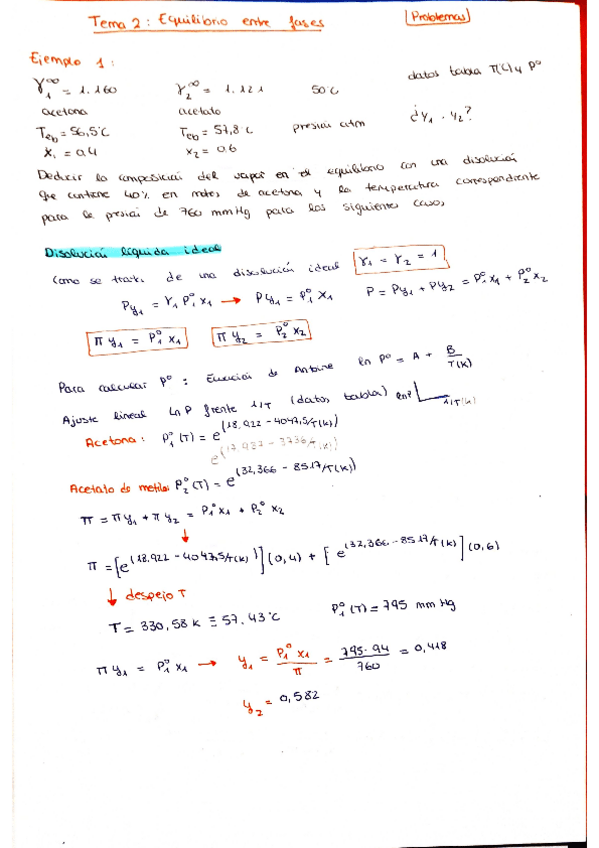 Tema 2: Equilibrio entre fases
Problemas
Ejemplo 1:
γ₁^∞ = 1.160 γ₂^∞ = 1.121 50°C datos tabla T(°C) y P°
acetona acetato ¿Y₁ · Y₂?
Teb = 56,5°C Teb = 57,8 C presión atm
x₁ = 0,4 x₂ = 0.6
Deducir la composición del vapor en el equilibrio con una disolución
que contiene 40% en moles de acetona y la temperatura correspondiente
para la presión de 760 mmHg para los siguientes casos,
Disolución líquida ideal
Como se trata de una disolución ideal γ₁ = γ₂ = 1
Py₁ = γ₁ P₁° x₁ → Py₁ = P₁° x₁ P = Py₁ + Py₂ = P₁° x₁ + P₂° x₂
π y₁ = P₁° x₁ π y₂ = P₂° x₂
Para calcular P°: Ecuación de Antoine ln P° = A + B/T(K)
Ajuste lineal Ln P frente 1/T (datos tabla) ln P 1/T(K)
Acetona: P₁°(T) = e^(18.922 - 4047,5/T(K))
e^(17.937 - 3736/T(K))
Acetato de metilo: P₂°(T) = e^(32,366 - 8517/T(K))
π = π y₁ + π y₂ = P₁° x₁ + P₂° x₂
↓
π = [e^(18.922 - 4047,5/T(K))](0,4) + [e^(32,366 - 8517/T(K))](0,6)
↓ despejo T
T = 330,58 K ≡ 57.43°C P₁°(T) = 795 mmHg
π y₁ = P₁° x₁ → y₁ = P₁° x₁/π = 795·94/760 = 0,418
y₂ = 0,582